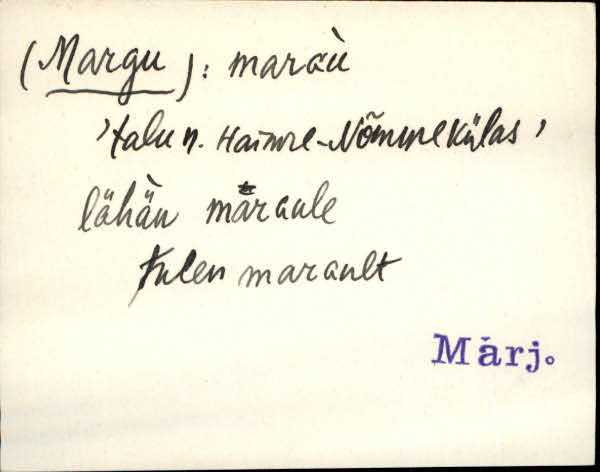 (Margu): maraù
'talu n. Haimre-Nõmmekülas'
lähän maraule
tulen marault
Märj.